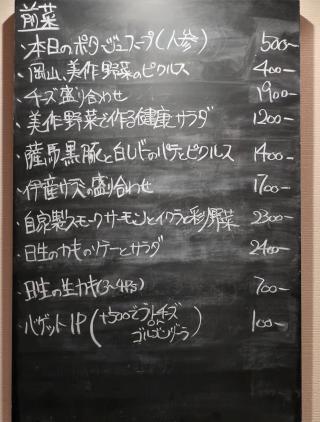 前菜
・本日のポタージュスープ(人参) 500-
・岡山、美作野菜のピクルス 400-
・チーズ盛り合わせ 1900-
・美作野菜で作る健康サラダ 1200-
・薩摩黒豚と白レバーのパテとピクルス 1400-
・伊産サラミの盛り合わせ 1700-
・自家製スモークサーモンとイクラと彩野菜 2300-
・日生のカキのソテーとサラダ 2400-
・日生の生カキ(3~4ps) 700-
・バゲット1P(+500でラトチーズ or ゴルゴンゾーラ) 100-